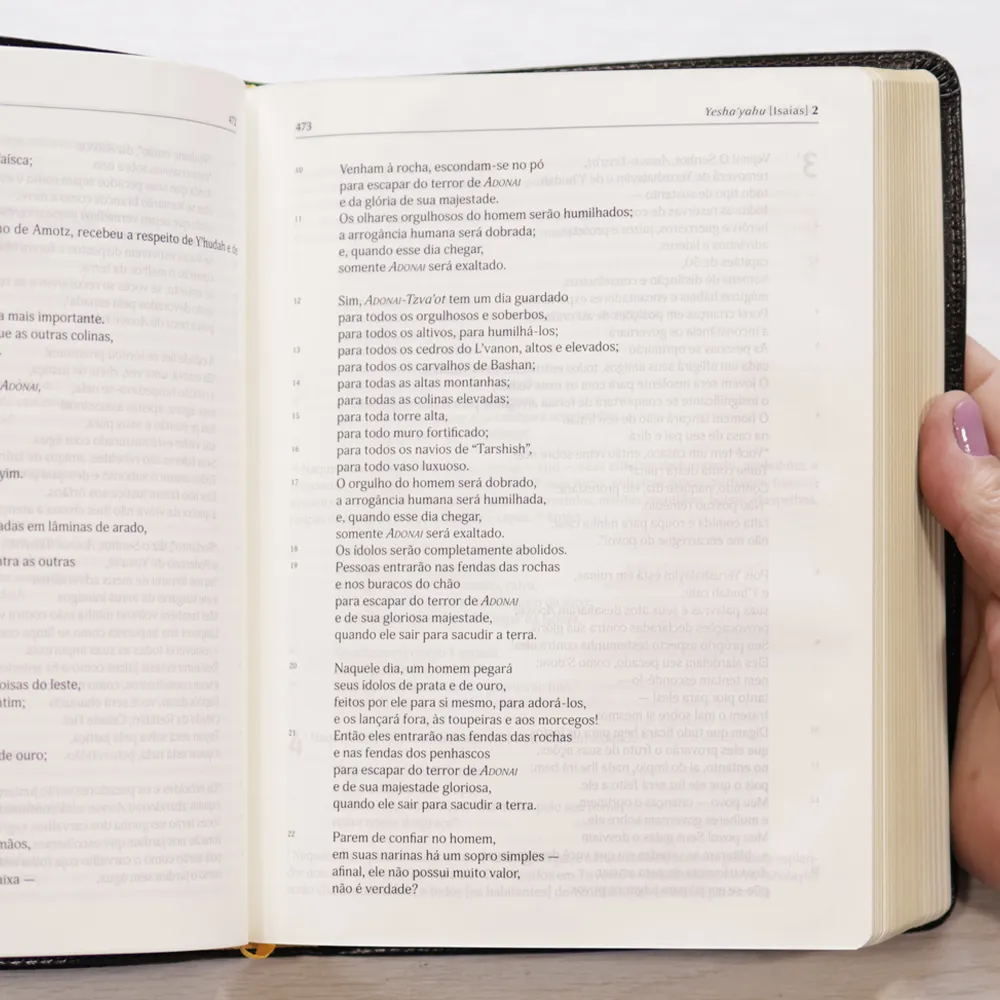 472
aísca;
no de Amotz, recebeu a respeito de Y'hudah e de
a mais importante.
ue as outras colinas,
ADONAI,
yim.
adas em lâminas de arado,
ntra as outras
oisas do leste,
ntim;
de ouro;
mãos,
aixa —
473
Yesha'yahu [Isaías] 2
10 Venham à rocha, escondam-se no pó
para escapar do terror de ADONAI
e da glória de sua majestade.
11 Os olhares orgulhosos do homem serão humilhados;
a arrogância humana será dobrada;
e, quando esse dia chegar,
somente ADONAI será exaltado.
12 Sim, ADONAI-TZVA'OT tem um dia guardado
para todos os orgulhosos e soberbos,
para todos os altivos, para humilhá-los;
13 para todos os cedros do L'vanon, altos e elevados;
para todos os carvalhos de Bashan;
14 para todas as altas montanhas;
para todas as colinas elevadas;
15 para toda torre alta,
para todo muro fortificado;
16 para todos os navios de “Tarshish”,
para todo vaso luxuoso.
17 O orgulho do homem será dobrado,
a arrogância humana será humilhada,
e, quando esse dia chegar,
somente ADONAI será exaltado.
18 Os ídolos serão completamente abolidos.
19 Pessoas entrarão nas fendas das rochas
e nos buracos do chão
para escapar do terror de ADONAI
e de sua gloriosa majestade,
quando ele sair para sacudir a terra.
20 Naquele dia, um homem pegará
seus ídolos de prata e de ouro,
feitos por ele para si mesmo, para adorá-los,
e os lançará fora, às toupeiras e aos morcegos!
21 Então eles entrarão nas fendas das rochas
e nas fendas dos penhascos
para escapar do terror de ADONAI
e de sua majestade gloriosa,
quando ele sair para sacudir a terra.
22 Parem de confiar no homem,
em suas narinas há um sopro simples —
afinal, ele não possui muito valor,
não é verdade?